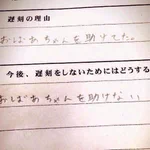 遅刻の理由
おばあちゃんを助けてた。
今後、遅刻をしないためにはどうする
おばあちゃんを助けない